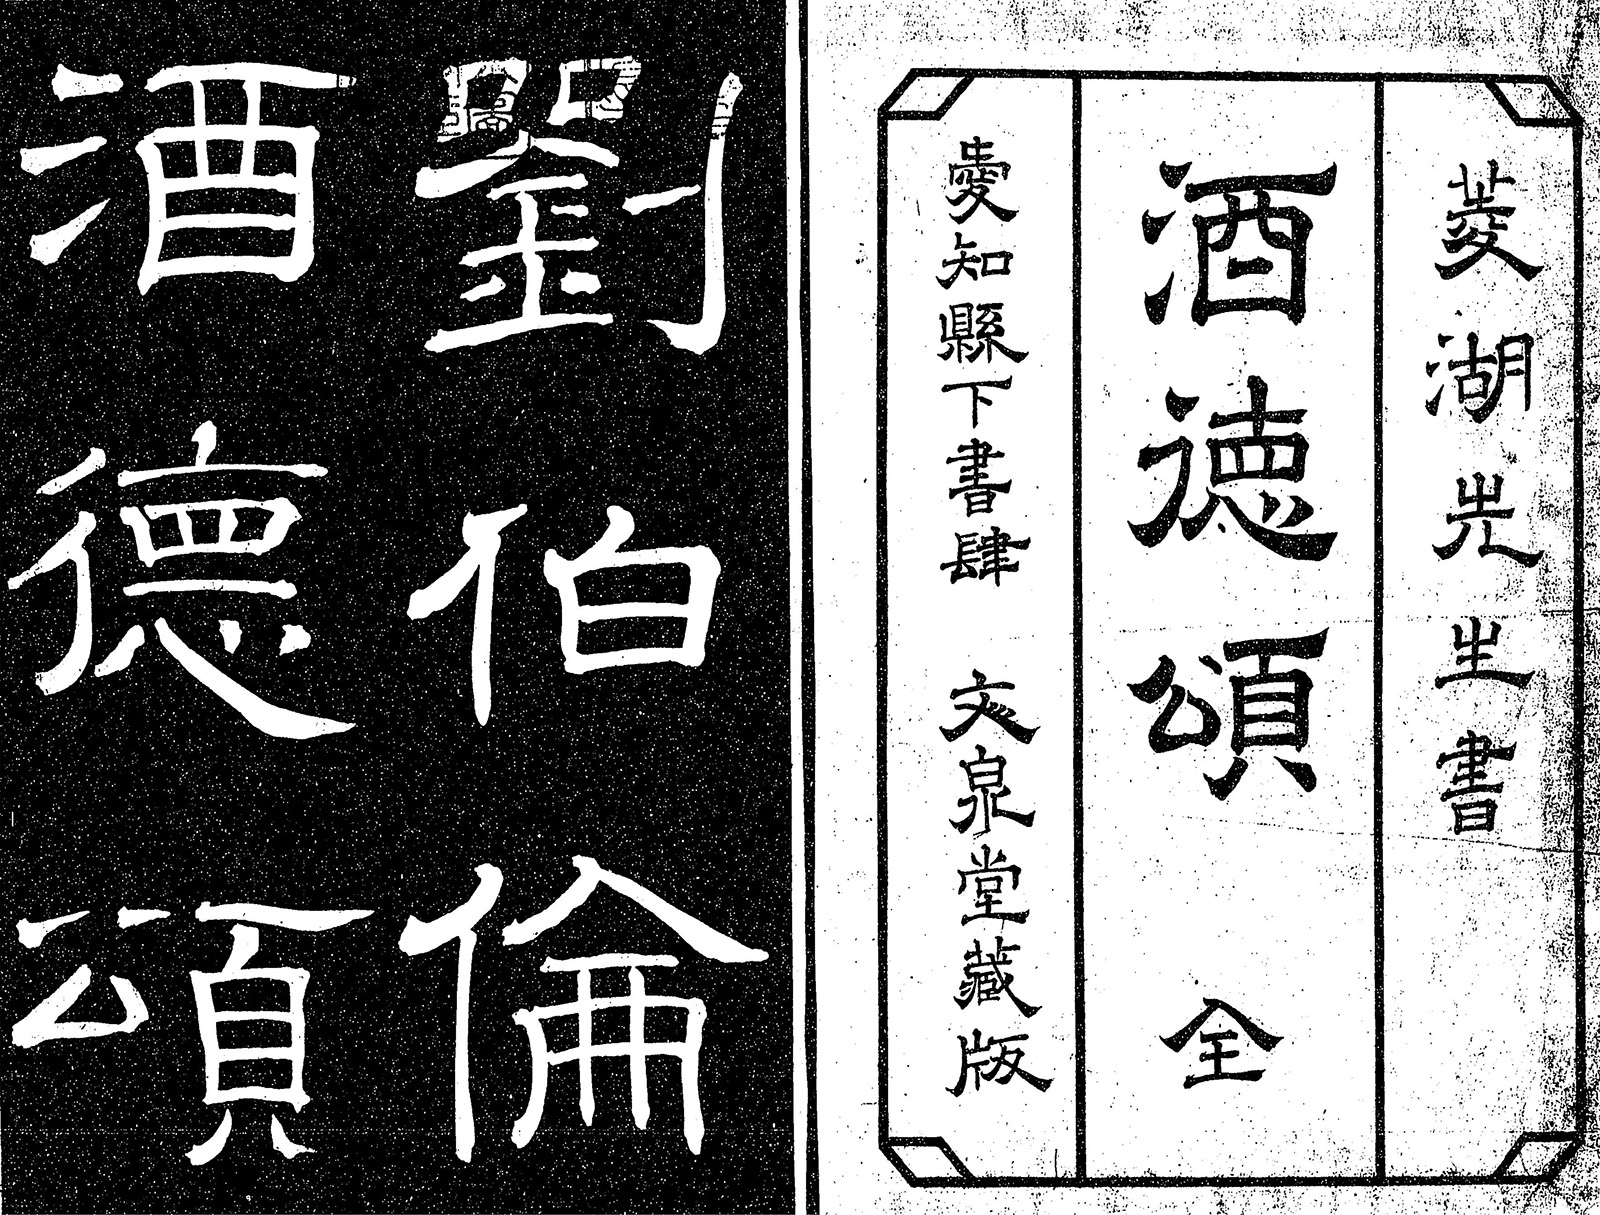 菱湖先生書
酒徳頌 全
愛知縣下書肆 文泉堂藏版
劉伯倫
酒德頌